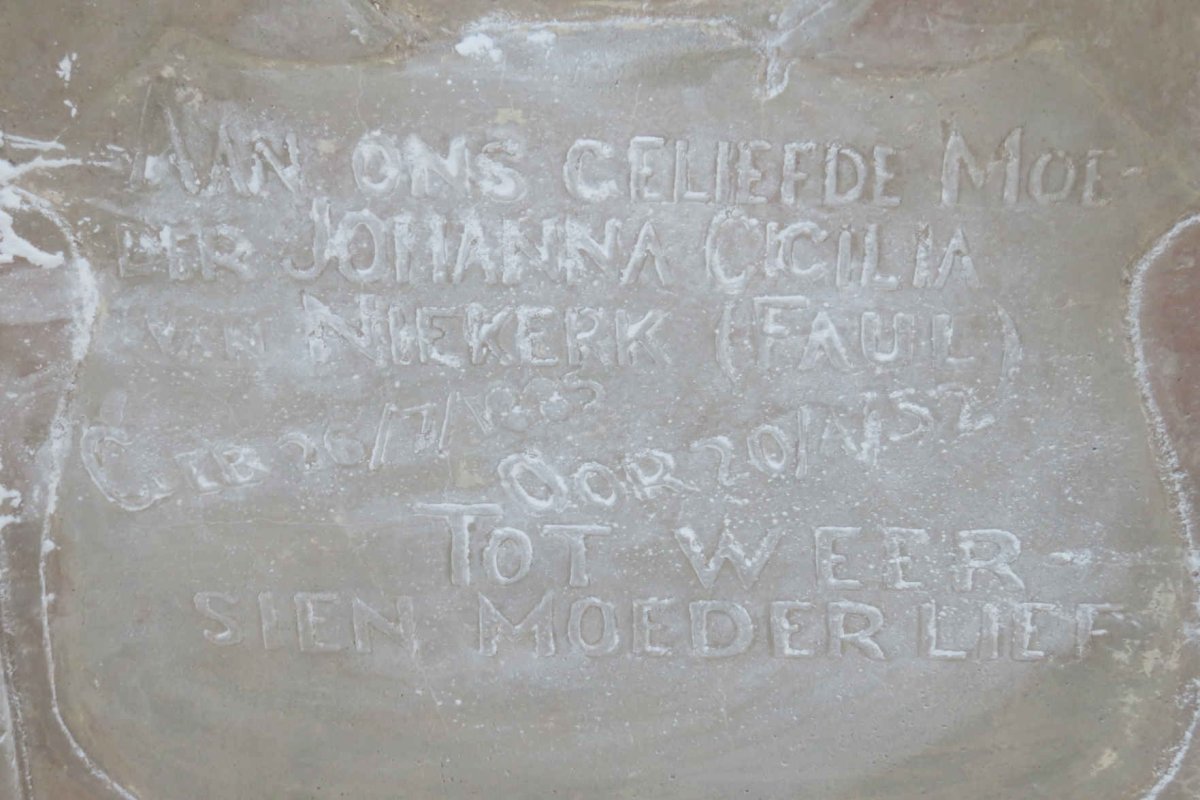 AAN ONS GELIEFDE MOE-
DER JOHANNA CICILIA
VAN NIEKERK (FAUL)
GEB 26/7/1883
OOR 20/1/52
TOT WEER-
SIEN MOEDER LIEF